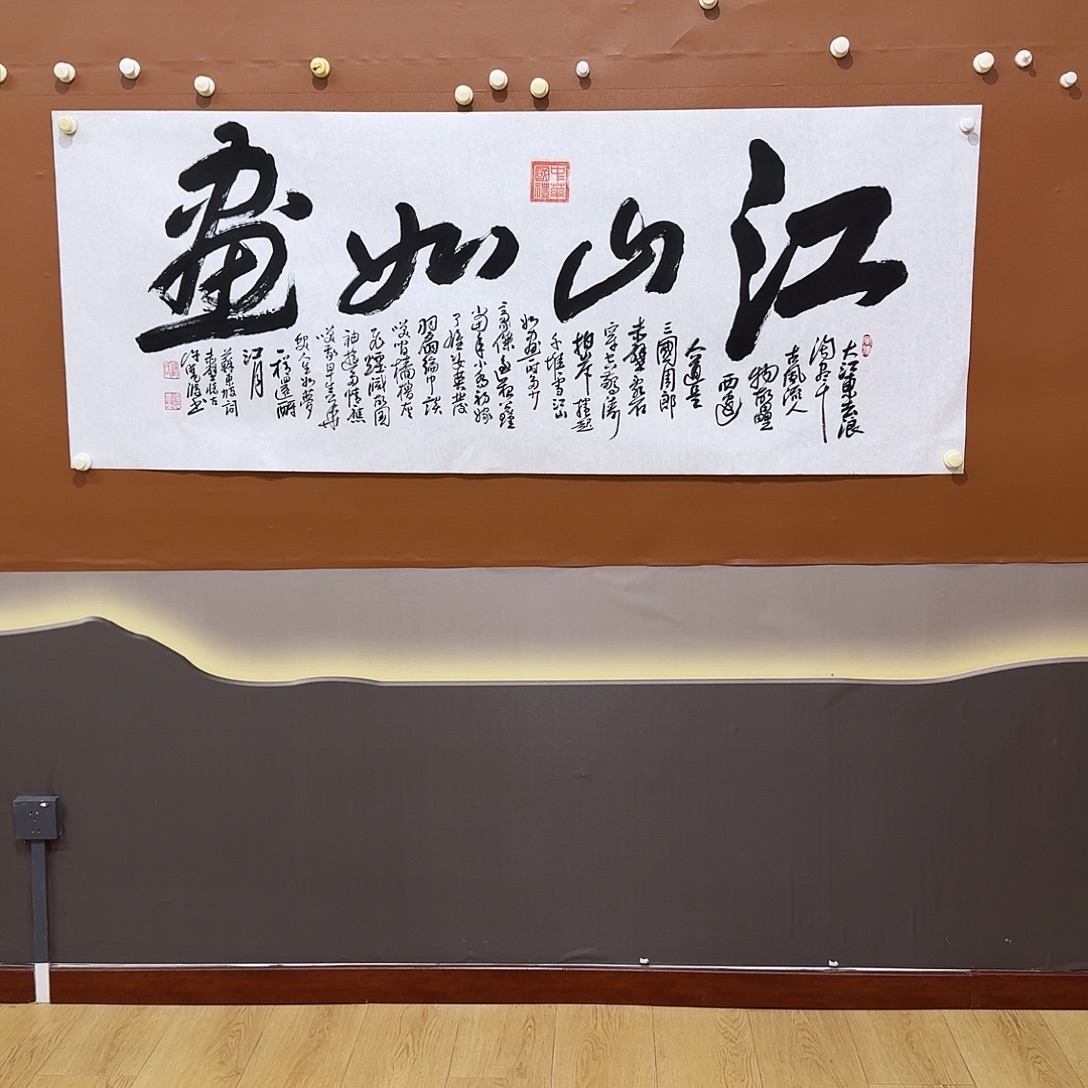 江山如畫
中華國禮
大江東去浪
淘尽千
古風流人
物故壘
西邊
人道是
三國周郎
赤壁乱石
穿空驚濤
拍岸捲起
千堆雪江山
如畫一時多少
豪傑遥想公瑾
當年小喬初嫁
了雄姿英發
羽扇綸巾談
笑间檣櫓灰
飛煙滅故國
神遊多情應
笑我早生华
髮人生如夢
一樽還酹
江月
蘇東坡詞
赤壁懷古